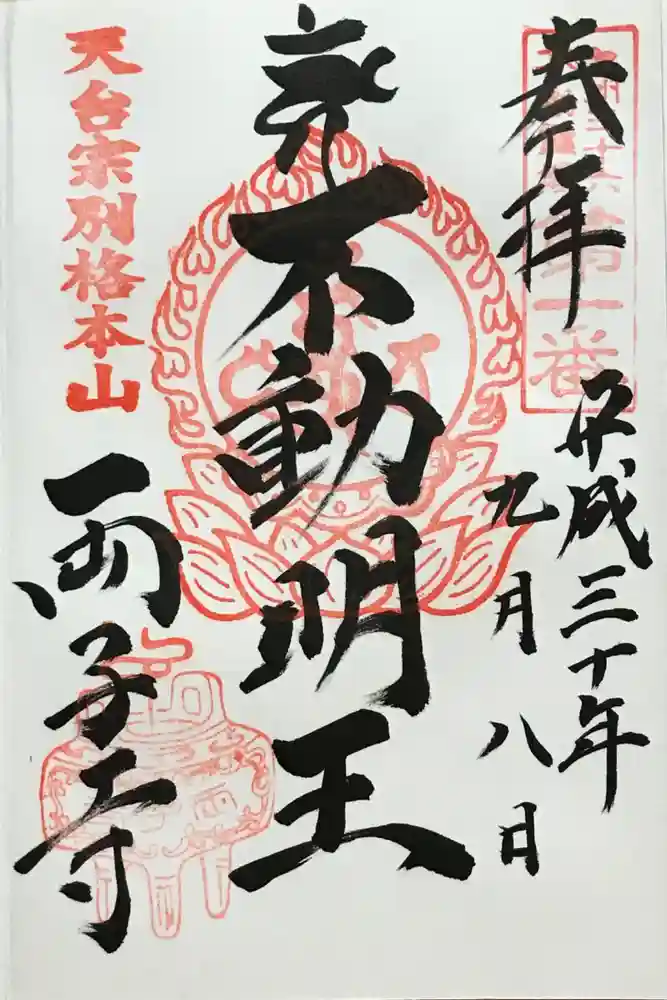 奉拝
第一番
平成三十年
九月八日
不動明王
天台宗別格本山
両子寺